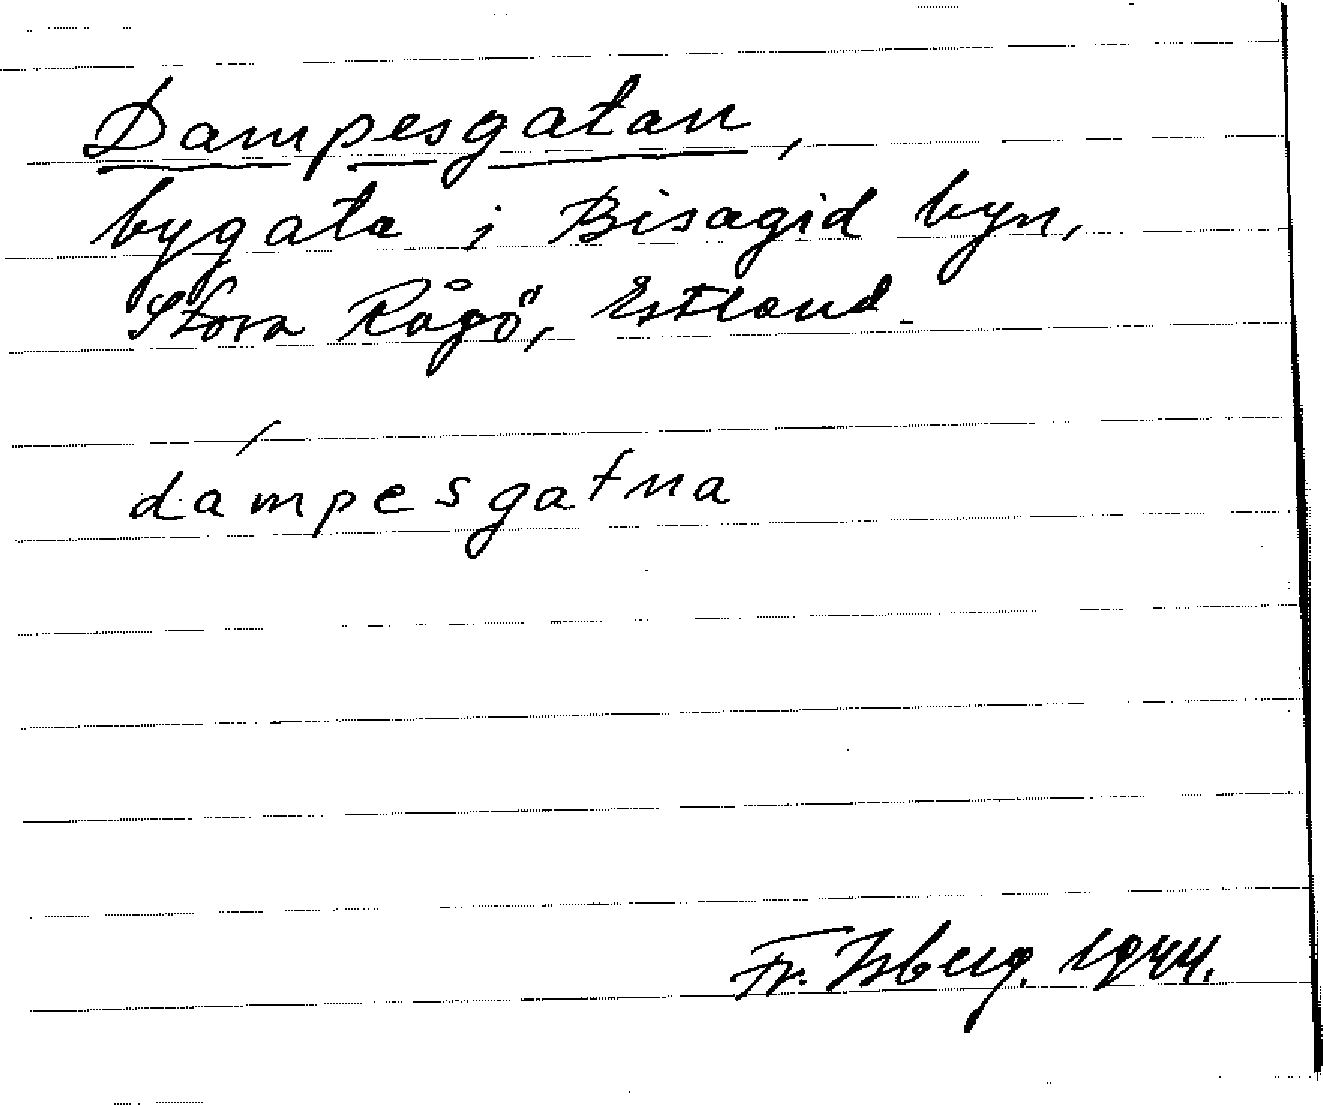 Dampesgatan,
bygata i Bisagid byn,
Stora Rågö, Estland.
dámpesgatna
Fr. Isberg. 1944.